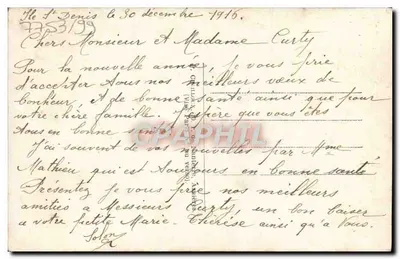 Ile St Denis le 30 decembre 1916.
7753/99
Chers Monsieur et Madame Curty
Pour la nouvelle année, je vous prie
d'accepter tous nos meilleurs voeux de
bonheur, et de bonne santé ainsi que pour
votre chère famille. J'espère que vous êtes
tous en bonne santé.
J'ai souvent de vos nouvelles par Mme
Mathieu qui est toujours en bonne santé
Presentez je vous prie nos meilleurs
amitiés a Messieurs Curty, un bon baiser
a votre petite Marie-Thérèse ainsi qu'a vous.
CPHIL